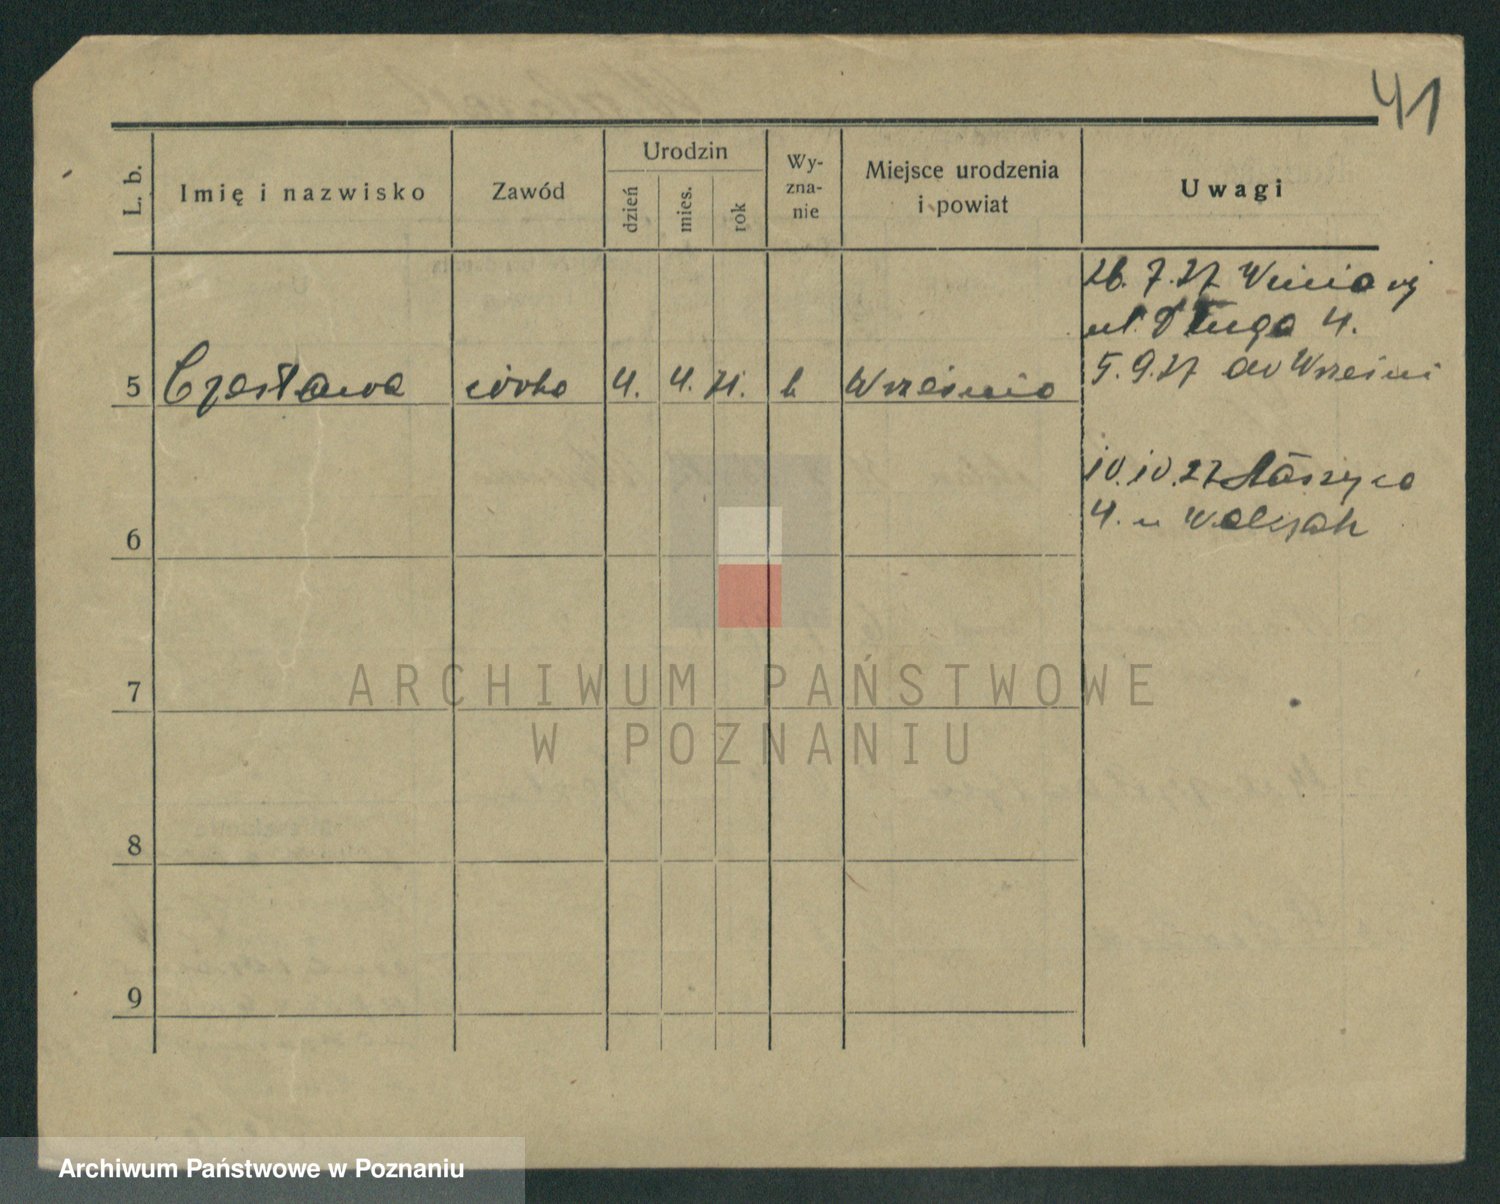 41
L. b.
Imię i nazwisko
Zawód
Urodzin
dzień
mies.
rok
Wy-
zna-
nie
Miejsce urodzenia
i powiat
Uwagi
26. 7. 27 Winiary
ul. Długa 4.
5 Czesława córka 4. 4. 21. k Września
5. 9. 27 do Wrześni
10. 10. 27 Staszyca
4. u
6
7
8
9
ARCHIWUM PAŃSTWOWE
W POZNANIU
Archiwum Państwowe w Poznaniu